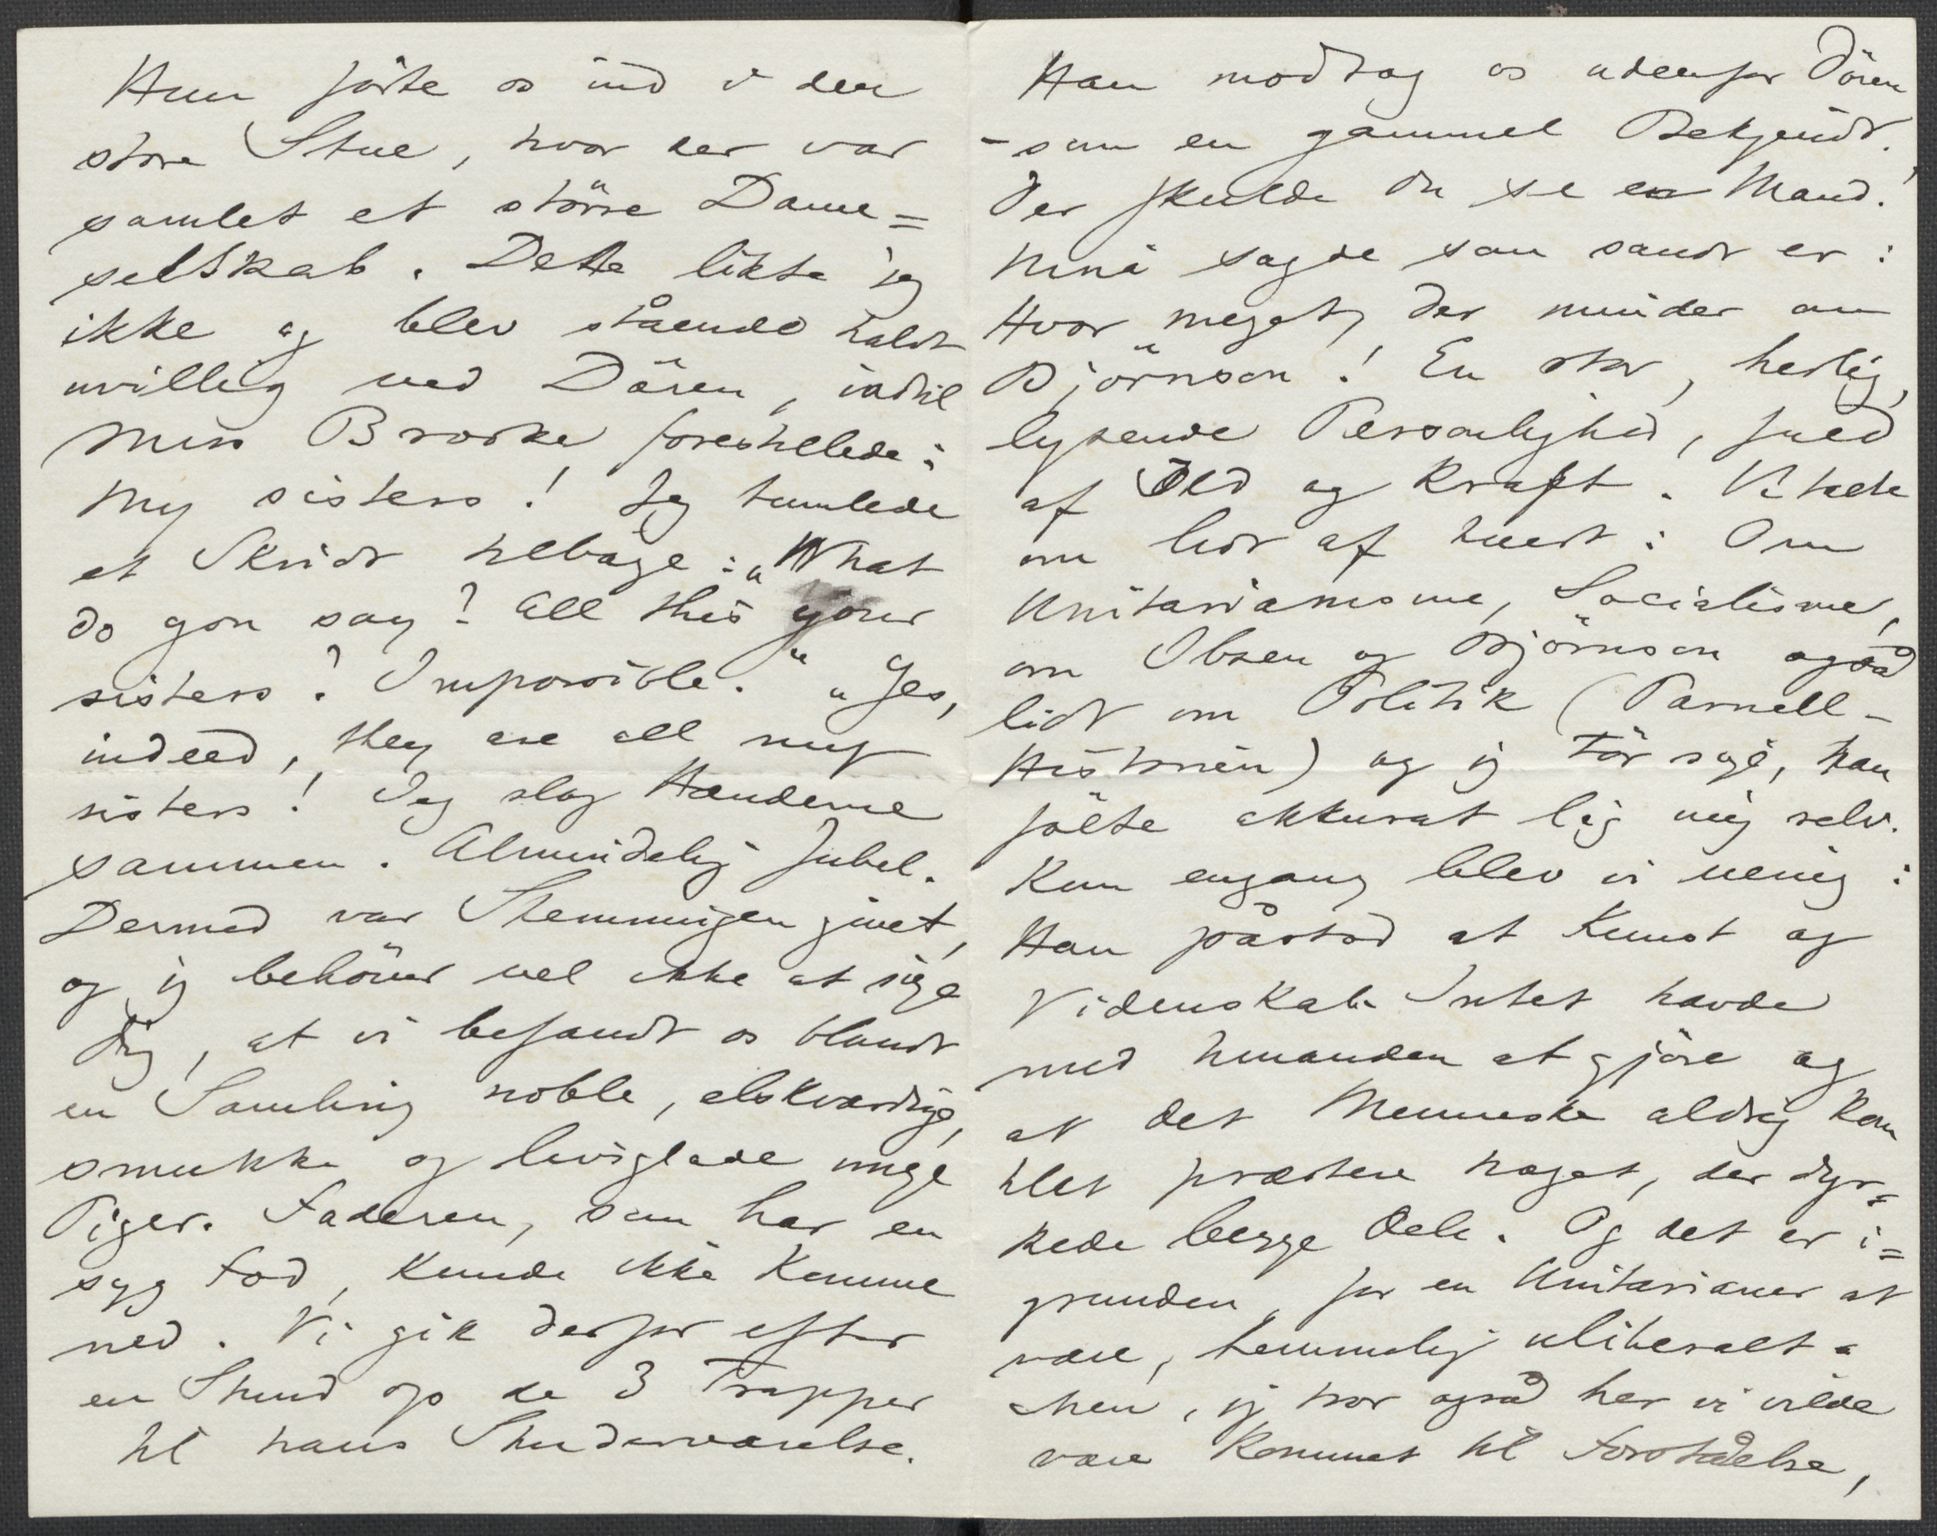 Hun førte os ind i den
store Stue, hvor der var
samlet et större Dame=
selskab. Dette likte jeg
ikke og blev stående halvt
uvillig ved Dören, indtil
Miss Brooke forestillede:
My sisters! Jeg tumlede
et Skridt tilbage: „What
do you say? All this your
sisters? Impossible." „Yes,
indeed, they are all my
sisters! Jeg slog Hænderne
sammen. Almindelig Jubel.
Dermed var Stemningen givet,
og jeg behöver vel ikke at sige
dig, at vi befandt os blandt
en Samling noble, elskværdige,
smukke og livsglade unge
Piger. Faderen, som har en
syg Fod, kunde ikke komme
ned. Vi gik derfor efter
en Stund op de 3 Trapper
til hans Studerværelse.
Han modtog os udenfor Dören
- som en gammel Bekjendt.
Der skulde du se en Mand!
Nina sagde som sandt er:
Hvor meget, der minder om
Björnson! En stor, herlig,
lysende Personlighed, fuld
af Ild og Kraft. Vi talte
om lidt af hvert: Om
Unitarianisme, Socialisme,
om Ibsen og Björnson også
lidt om Politik (Parnell-
Historien) og jeg tör sige, han
fölte akkurat lig mig selv.
Kun engang blev vi uenig:
Han påstod at Kunst og
Videnskab Intet havde
med hinanden at gjöre og
at det Menneske aldrig kom
til at præstere noget, der dyr=
kede begge Dele. Og det er i=
grunden, for en Unitarianer at
være, temmelig uliberalt.
Men, jeg tror også her vi vilde
være kommet til Forståelse,